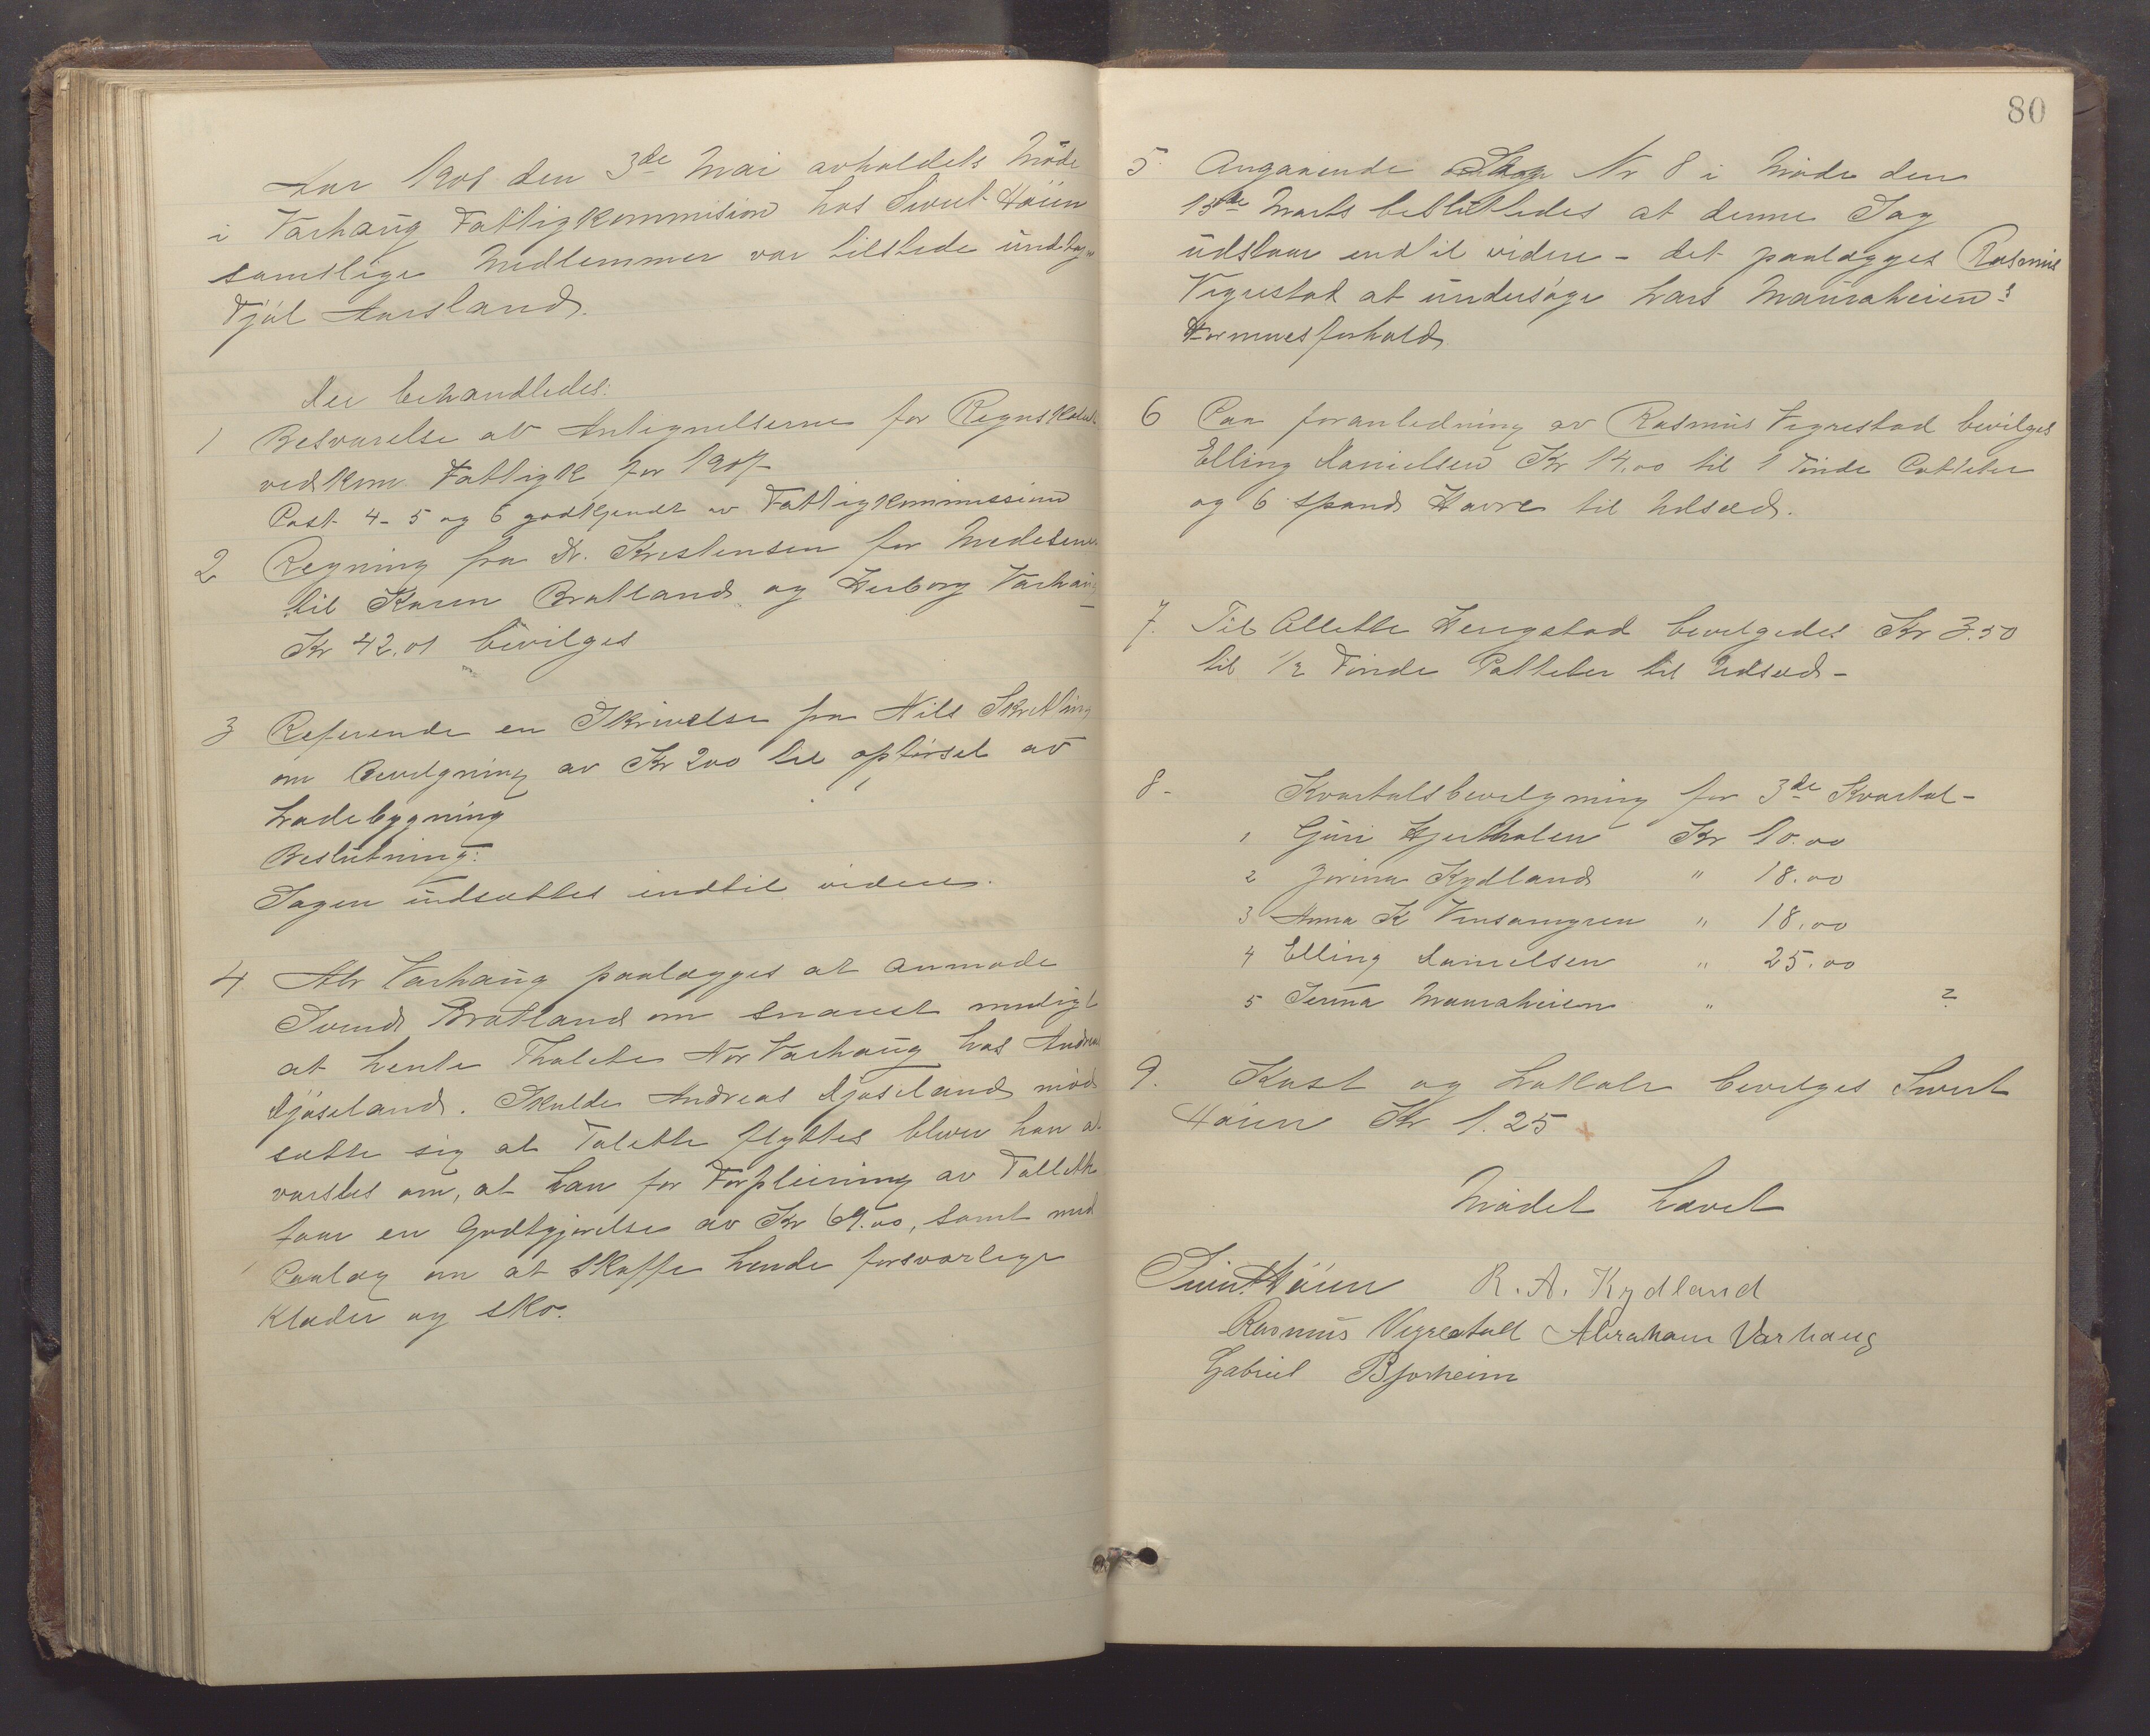 Aar 1908 den 3de Mai avholdets Møde
i Varhaug Fattigkommision hos Sivert Høien
samtlige Medlemmer var tilstede undtagen
Fjøl Aarsland.
Der behandledes:
1 Besvarelse av Antegnelserne for Regnskabet
vedkom Fattigk for 1907
Post 4-5 og 6 godkjendt av Fattigkommissione
2 Regning fra Dr. Kristensen for Medesener
til Karen Bratland og Herborg Varhaug
Kr 42.01 bevilges
3 Referende en Skrivelse fra Nils Skretting
om Bevilgning av Kr 200 til opførsel av
Ladebygning
Beslutning:
Sagen udsættes indtil videre.
4 Abr Varhaug paalægges at anmode
Svend Bratland om snarest muligt
at hente Thalette Nor Varhaug hos Andreas
Njøseland. Skulde Andreas Njøseland mod
sætte sig at Talette flyttes bliver han at
varsles om, at han for Forpleining av Tallette
faar en Godtgjørelse av Kr 69.00, samt med
Paalæg om at skaffe hende forsvarlige
Klæder og sko.
80
5. Angaaende Sag Nr 8 i Møde den
15de Marts besluttedes at denne Sag
udstaar endtil videre - det paalægges Rasmus
Vigrestad at undersøge Lars Mauraheien's
Formuesforhold
6 Paa foranledning av Rasmus Vigrestad bevilges
Elling Danielsen Kr 14.00 til 1 Tønde Potteter
og 6 Spand Havre til Udsæd.
7. Til Allette Herigstad bevilgedes Kr 3.50
til 1/2 Tønde Potteter til Udsæd -
8- Kvartalsbevilgning for 3de Kvartal -
1 Guri Hjerthalen Kr 10.00
2 Jorina Kydland " 18.00
3 Anna K " 18.00
4 Elling Danielsen " 25.00
5 Serina Mauraheien " ?
9. Kost og Lokale bevilges Sivert
Høien Kr 1.25
Mødet hævet
Sivert Høien R. A. Kydland
Rasmus Vigrestad Abraham Varhaug
Gabriel Bjorheim